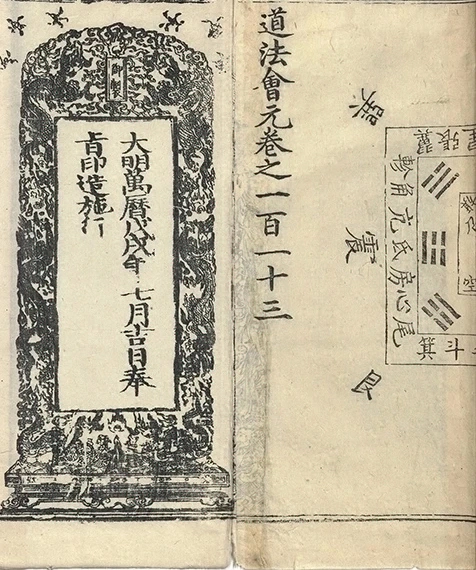 張翼
軫角亢氐房心尾
箕斗
巽
震
艮
道法會元卷之一百一十三
御製
大明萬曆戊戌年 七月吉日奉
旨印造施行